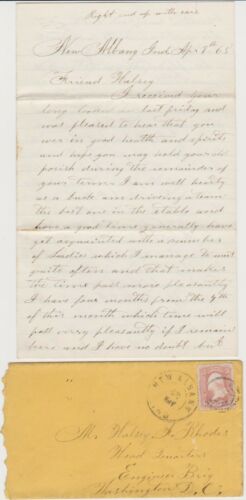 Right end up with care
New Albany Ind Apr 8th 65
Friend Halsey
I received your
long letter on last friday and
was pleased to hear that you
wer in good health and spirits
and hope you may hold your
posish during the remainder of
your term. I am well hearty
as a buck am driving a team
the best one in the stable and
have a good time generally have
got acquainted with a number
of Ladies which I manage to visit
quite often and that makes
the time pass more pleasantly
I have four months from the 9th
of this month which time will
pass very pleasantly if I remain
here and I have no doubt but
NEW ALBANY
IND
Mr Halsey H. Rhodes
Head Quarters
Engineer Brig
Washington D. C.